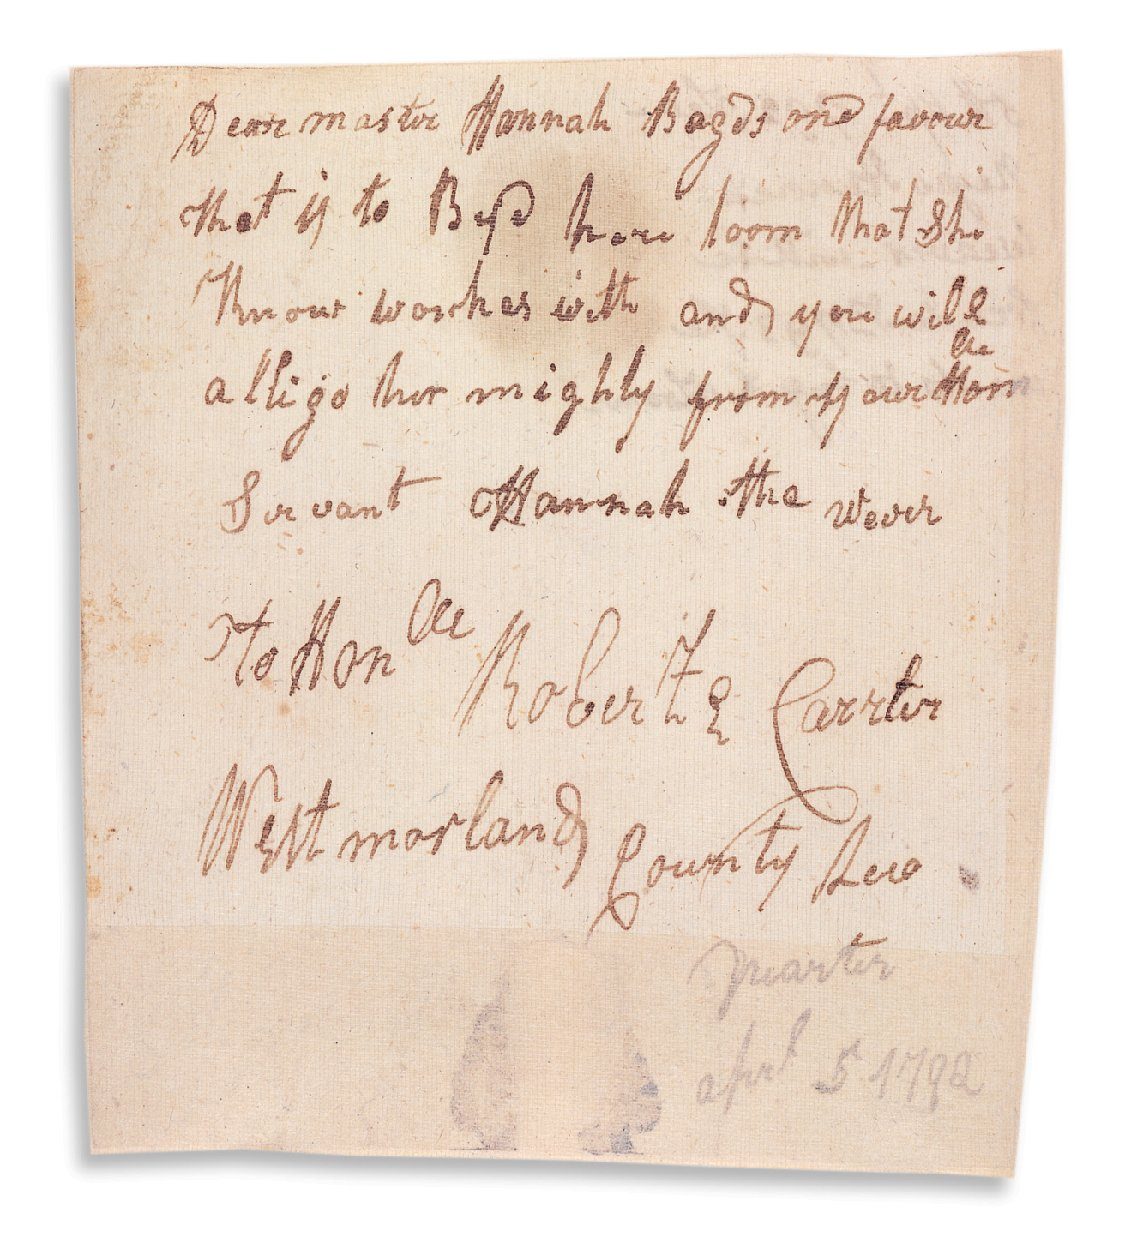 Dear master Hannah Bagds one favour
that is to Bye here loom that She
know workes with and you will
alligo her mighly from your Hon ble
Servant Hannah the wever
to Hon ble Robert Carrter
Westmorland County Leo
Quarter
aprl 5 1792